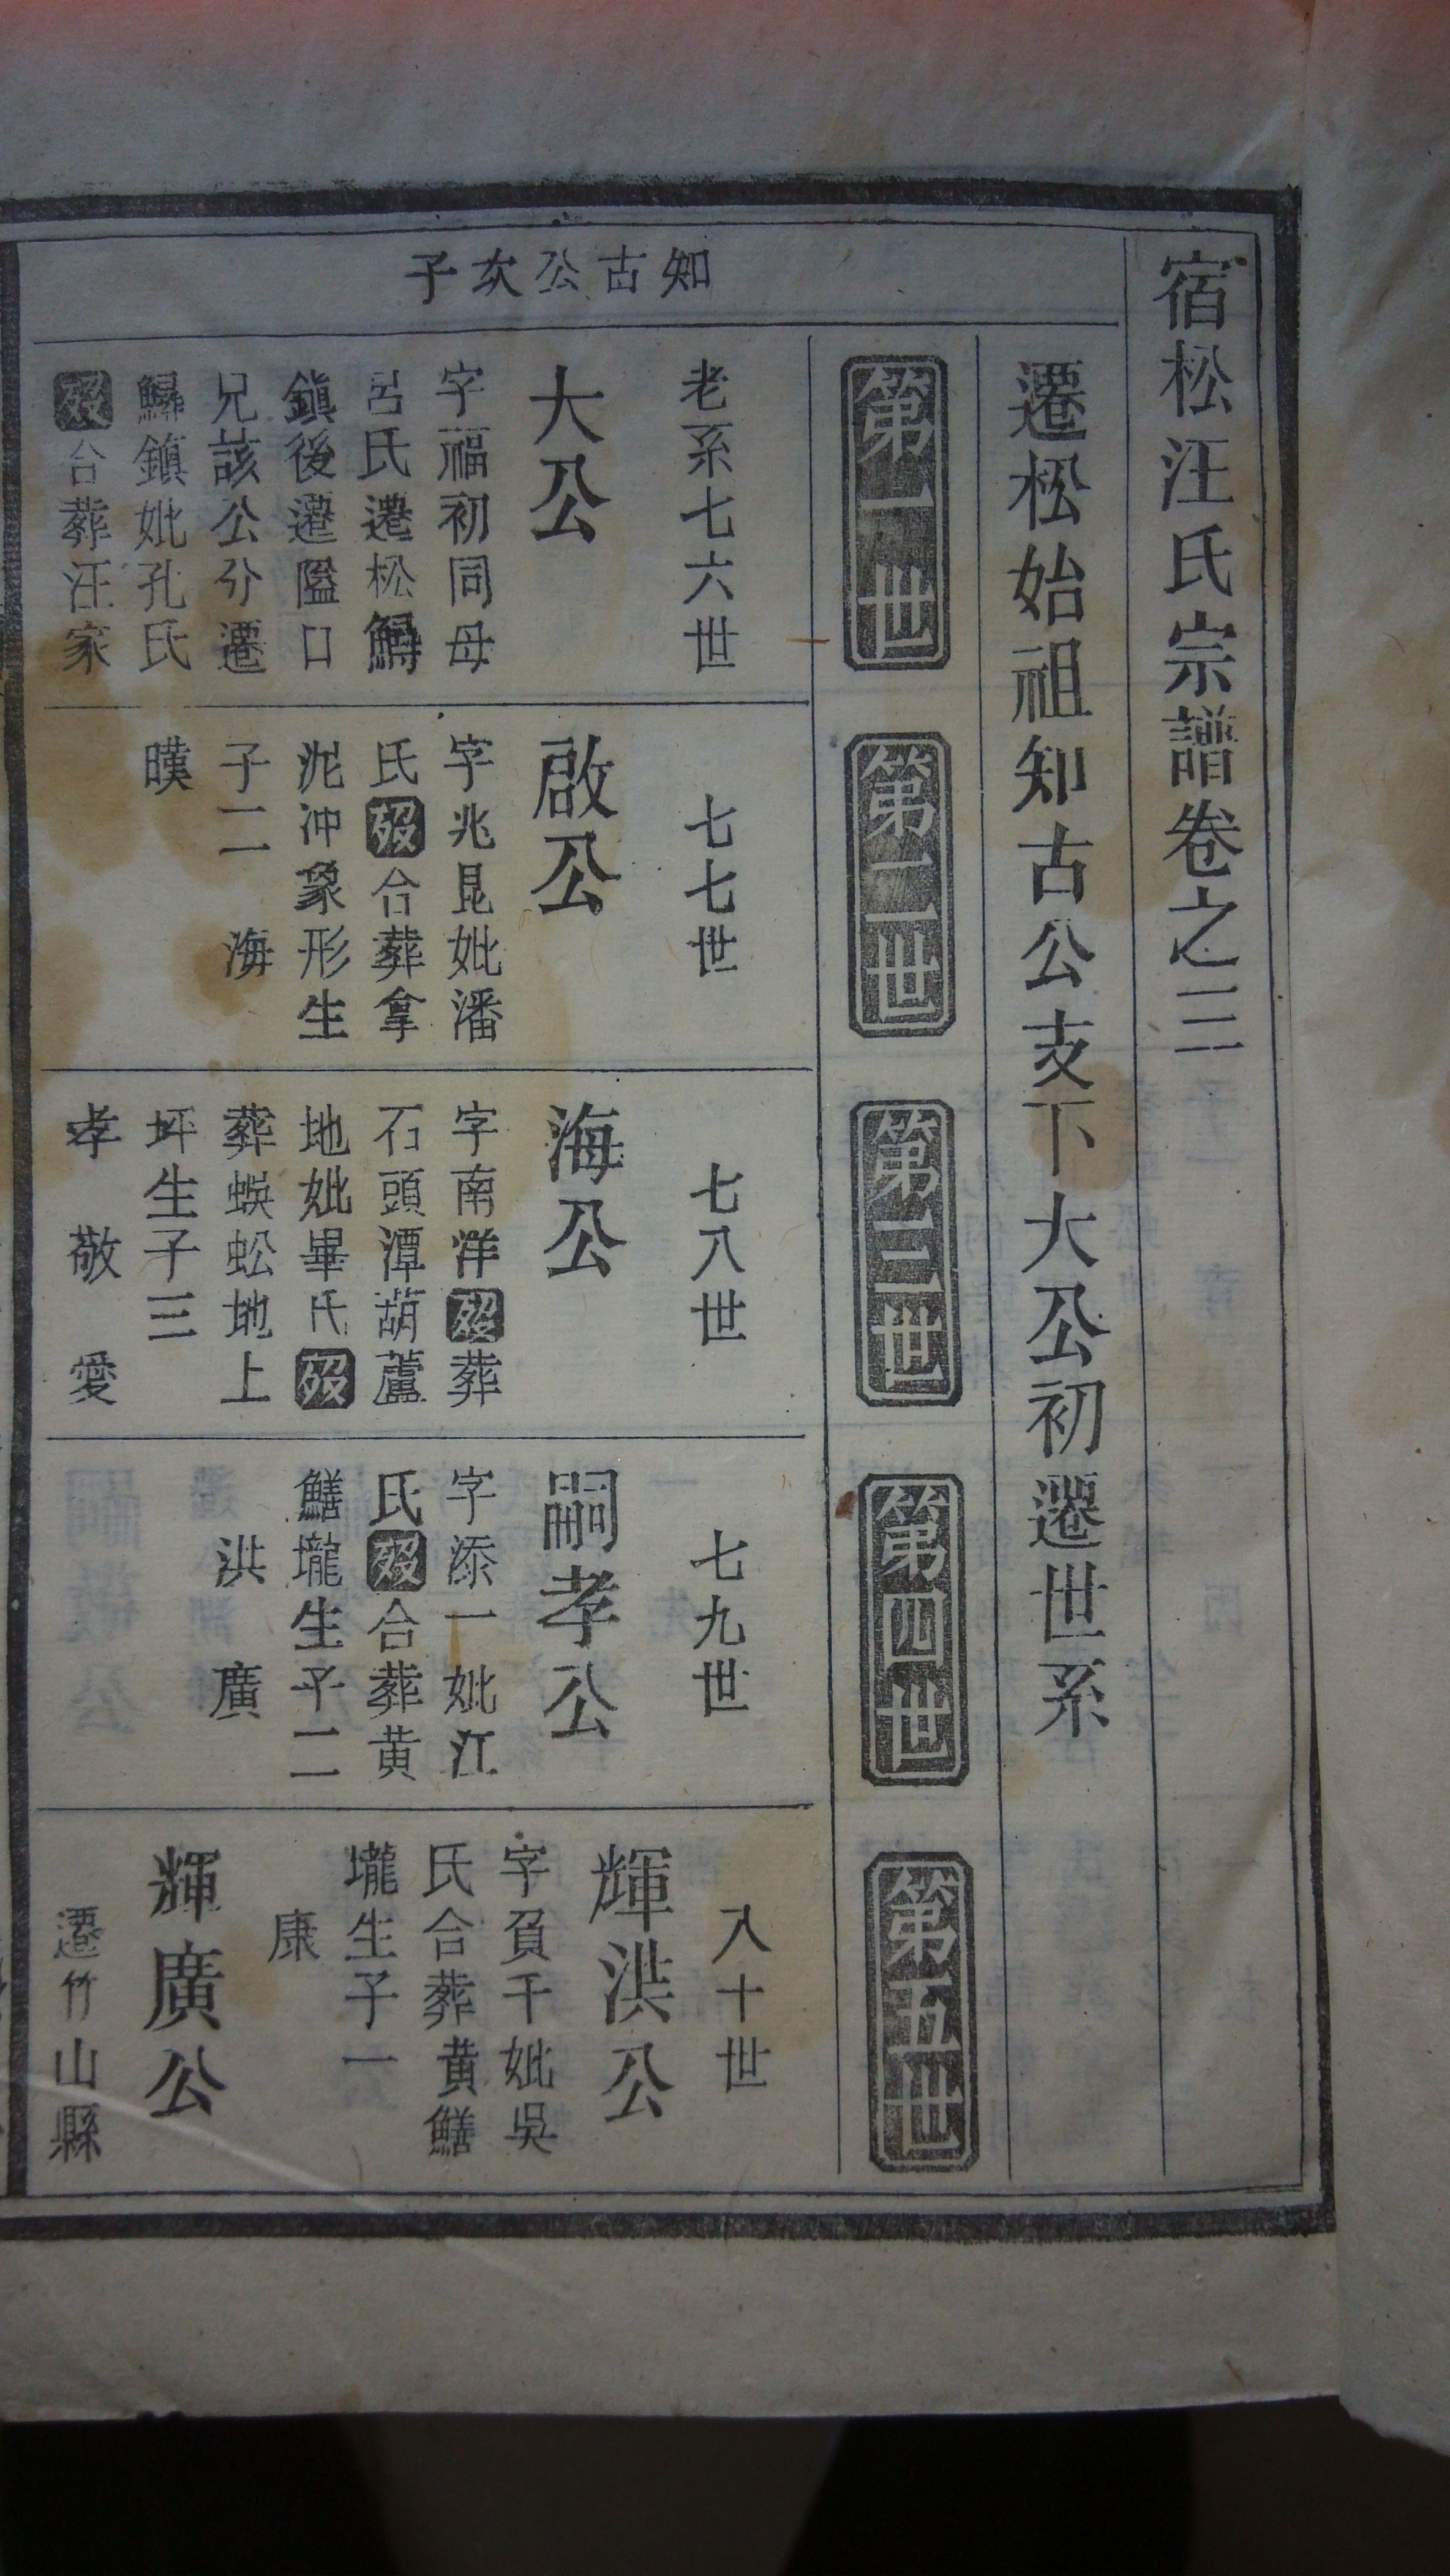 宿松汪氏宗譜卷之三
遷松始祖知古公支下大公初遷世系
第一世
第二世
第三世
第四世
第五世
知古公次子
老系七六世
大公
字福初同母
呂氏遷松鱘
鎮後遷隘口
兄該公分遷
鱘鎮妣孔氏
歿合葬汪家
七七世
啟公
字兆昆妣潘
氏歿合葬拿
沇冲象形生
子二 海
暵
七八世
海公
字南洋歿葬
石頭潭葫蘆
地妣畢氏歿
葬蜈蚣地上
坪生子三
孝 敬 愛
七九世
嗣孝公
字添一妣江
氏歿合葬黄
鱔壠生子二
洪 廣
八十世
輝洪公
字負千妣吳
氏合葬黄鱔
壠生子一
康
輝廣公
遷竹山縣